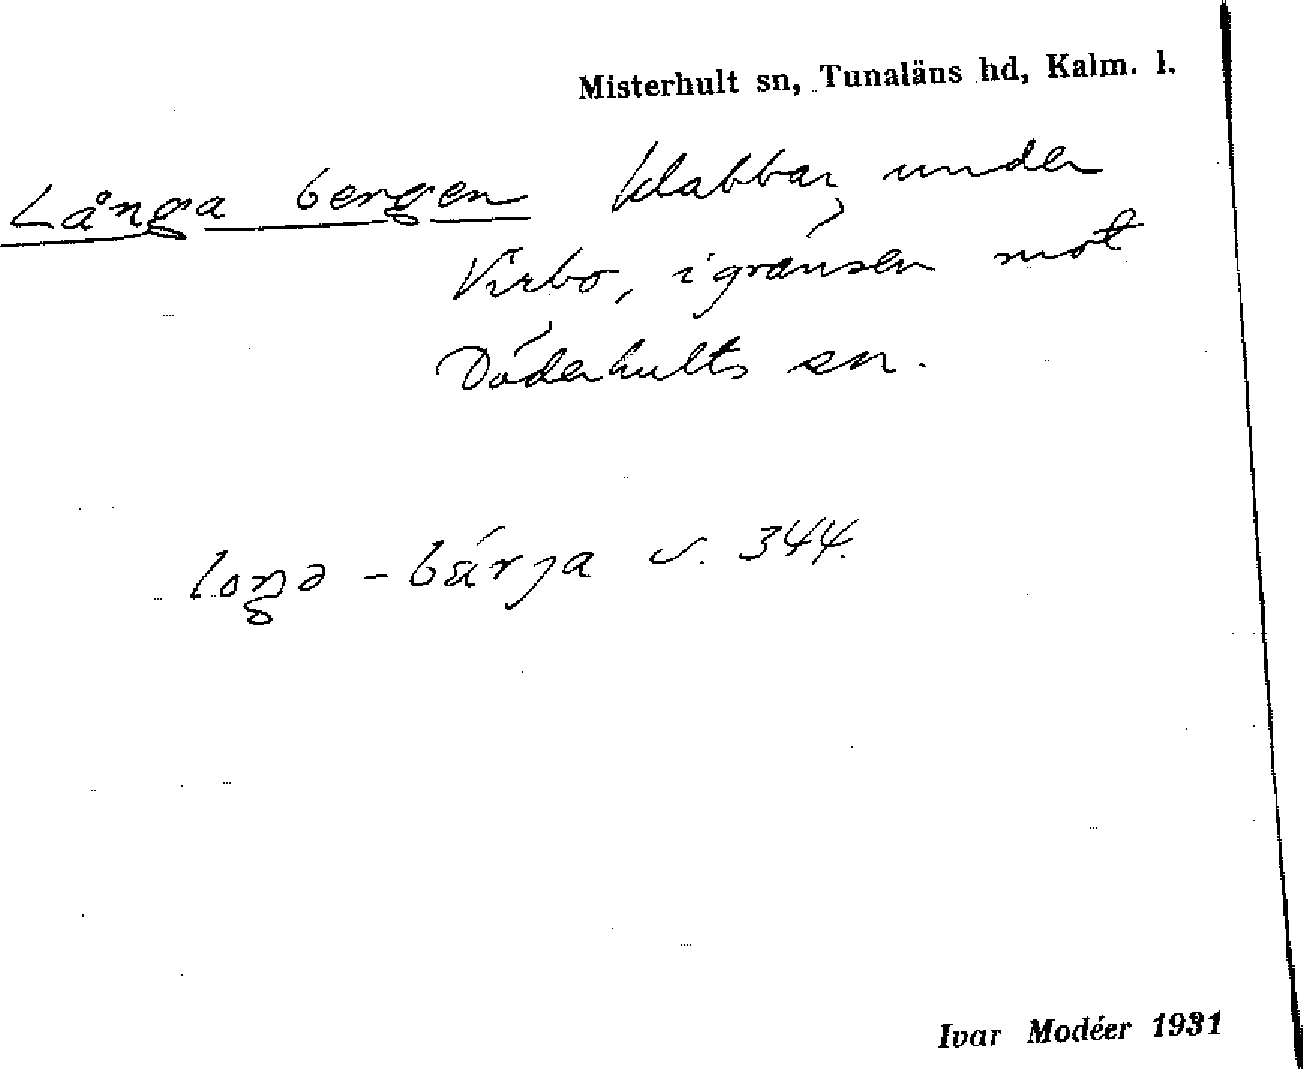 Misterhult sn, Tunaläns hd, Kalm. l.
Långa bergen klabbar, under
Virbo, i gränsen mot
Döderhults sn.
loŋə - bärja v. 344.
Ivar Modéer 1931